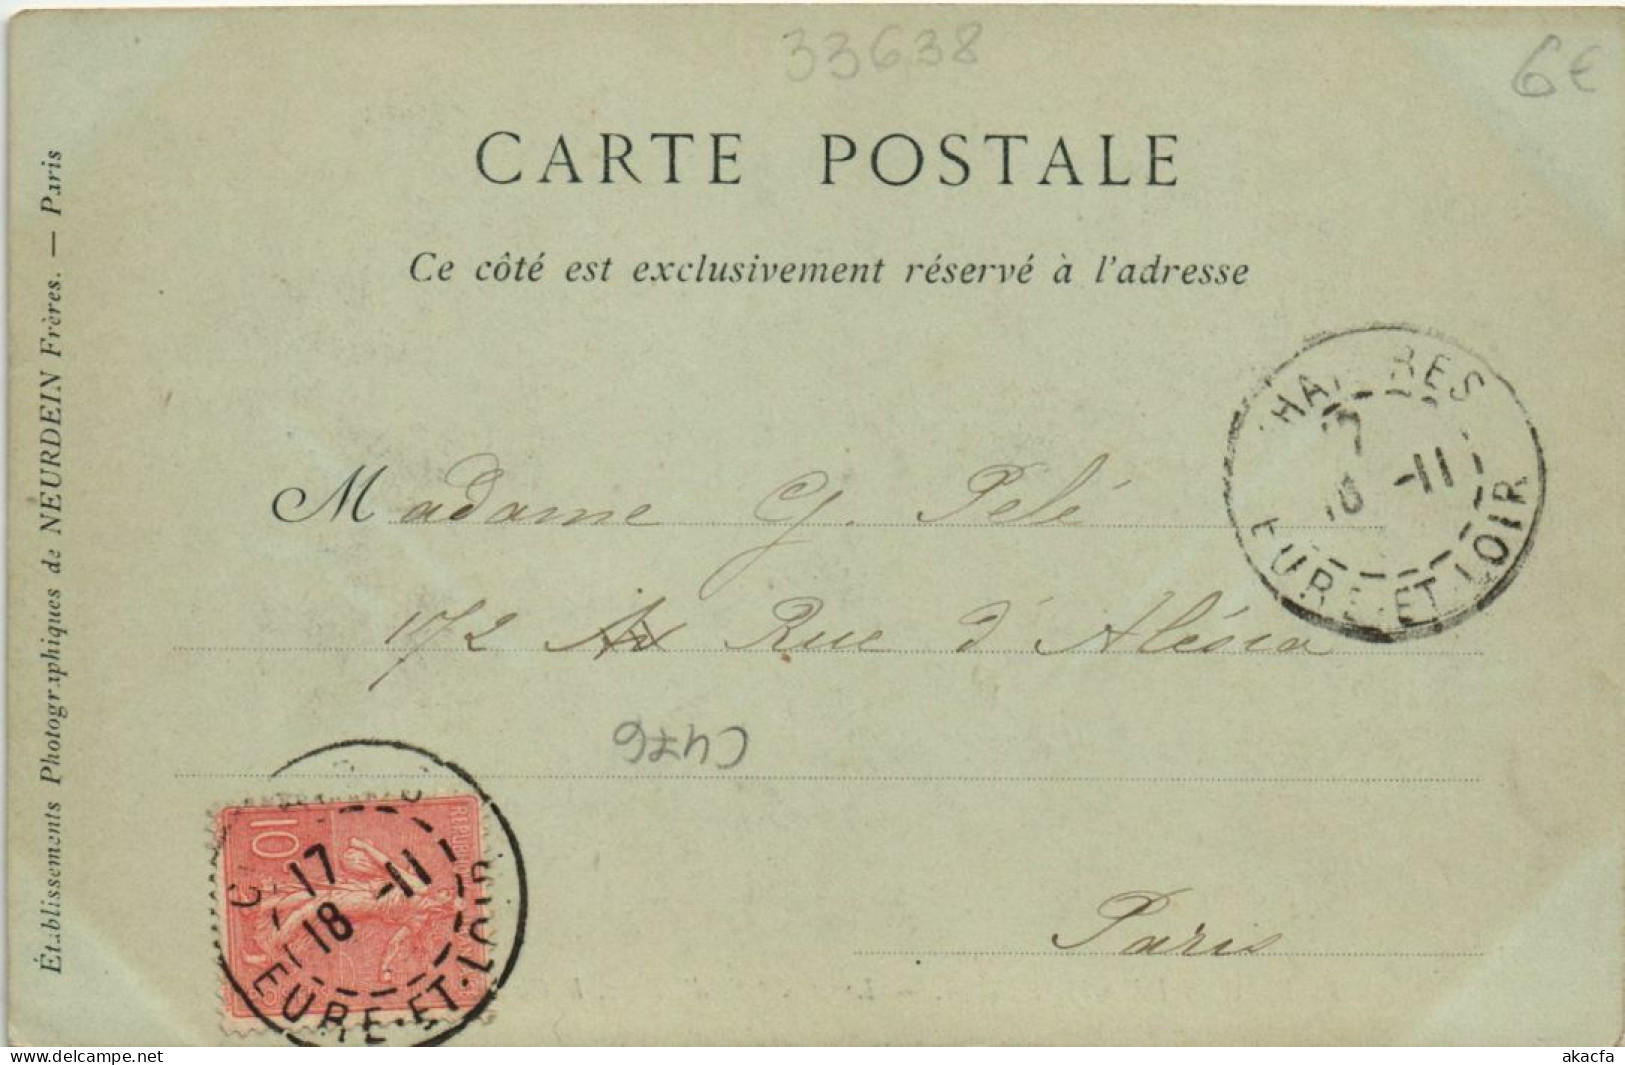 33638
6€
CARTE POSTALE
Ce côté est exclusivement réservé à l'adresse
Établissements Photographiques de NEURDEIN Frères. — Paris
EURE-ET-LOIR
-11
Madame G. Pelé
172 Rue d'Alésia
C476
10
17 -11
18
EURE-ET-LOIR
Paris
www.akacfa.com
akacfa